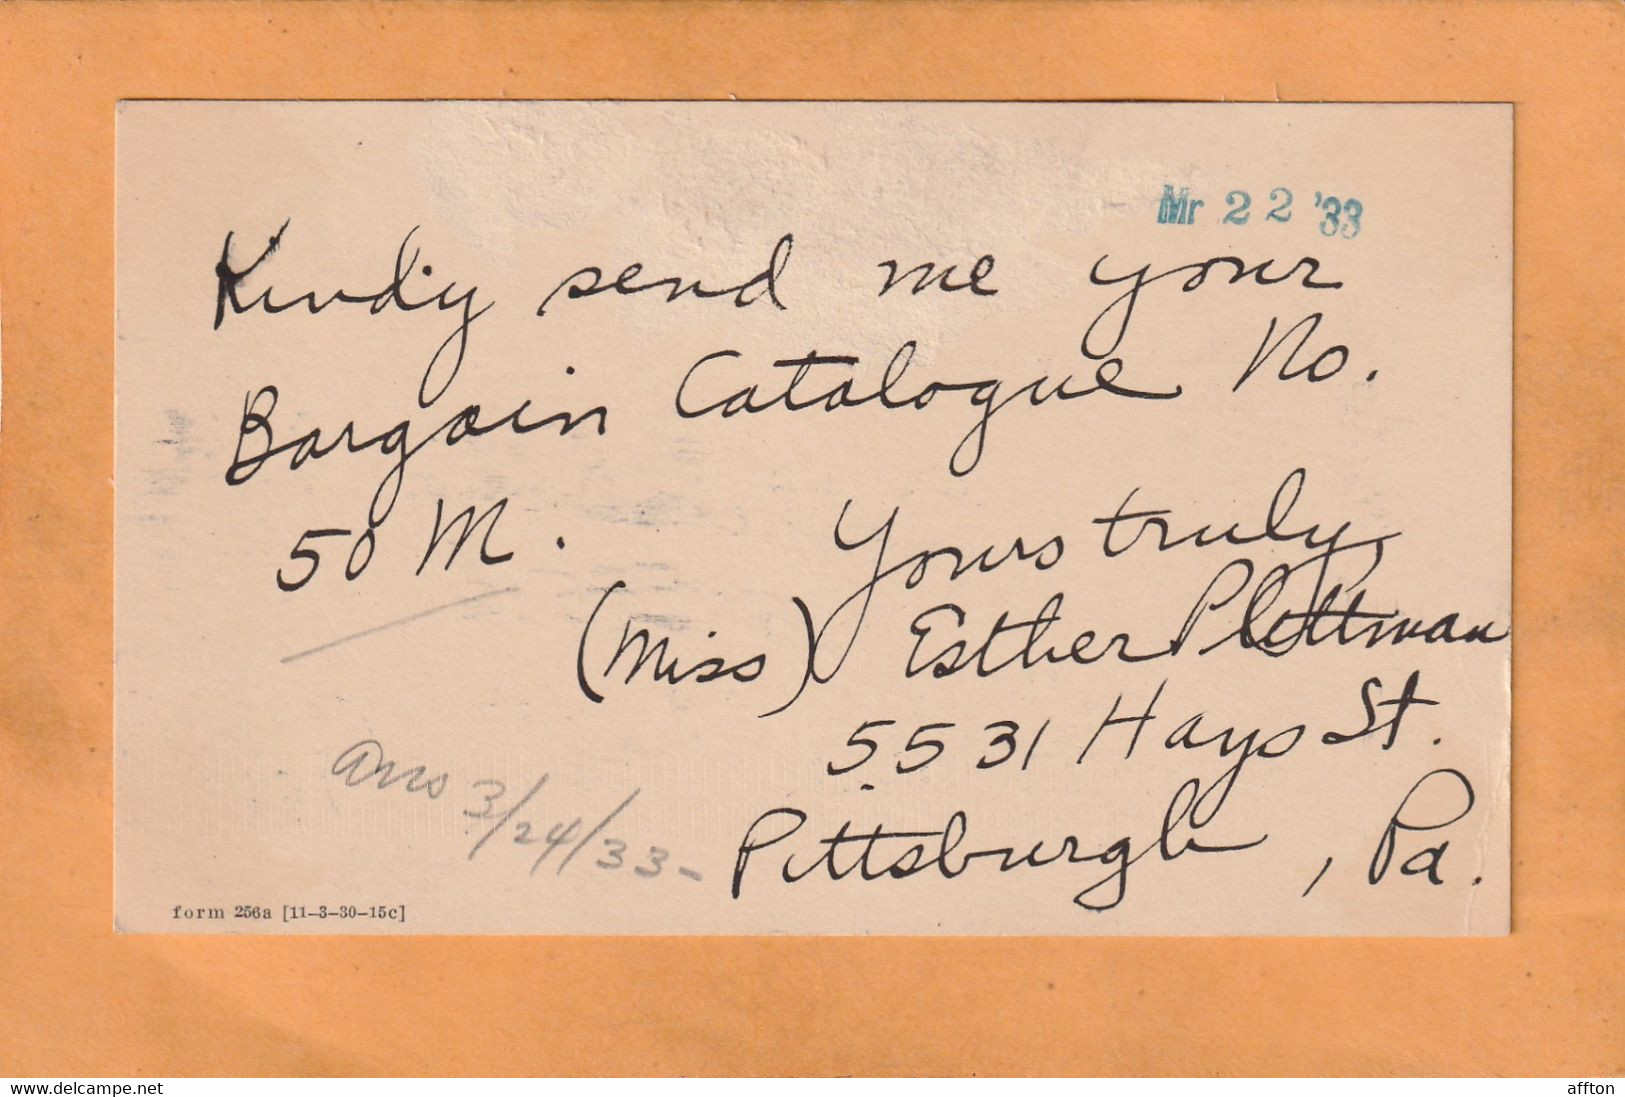 Mr 22 '33
Kindly send me your
Bargain Catalogue No.
50 M.
Yours truly,
(Miss) Esther Plottman
5531 Hays St.
Pittsburgh, Pa.
Ans 3/24/33-
form 256a [11-3-30-15c]
www.delcampe.net
affton